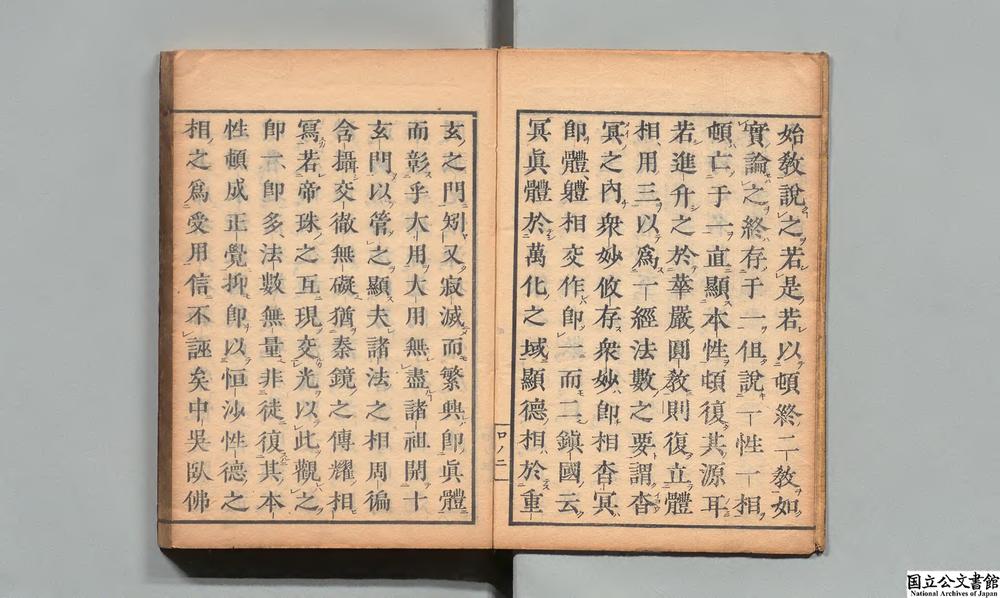 始教說之若是若以頓終二教如
實論之終存于一但說一性一相
頓亡于一直顯本性頓復其源耳
若進升之於華嚴圓教則復立體
相用三以爲一經法數之要謂杳
冥之內衆妙攸存衆妙卽相杳冥
卽體軆相交作卽一而二鎭國云
冥眞體於萬化之域顯德相於重
口ノ二
玄之門矧又寂滅而繁興卽眞體
而彰乎大用大用無盡諸祖開十
玄門以管之顯夫諸法之相周徧
含攝交徹無礙猶秦鏡之傳耀相
寫若帝珠之互現交光以此觀之
卽一卽多法數無量非徒復其本
性頓成正覺抑卽以恒沙性德之
相之爲受用信不誣矣中吳臥佛
国立公文書館
National Archives of Japan